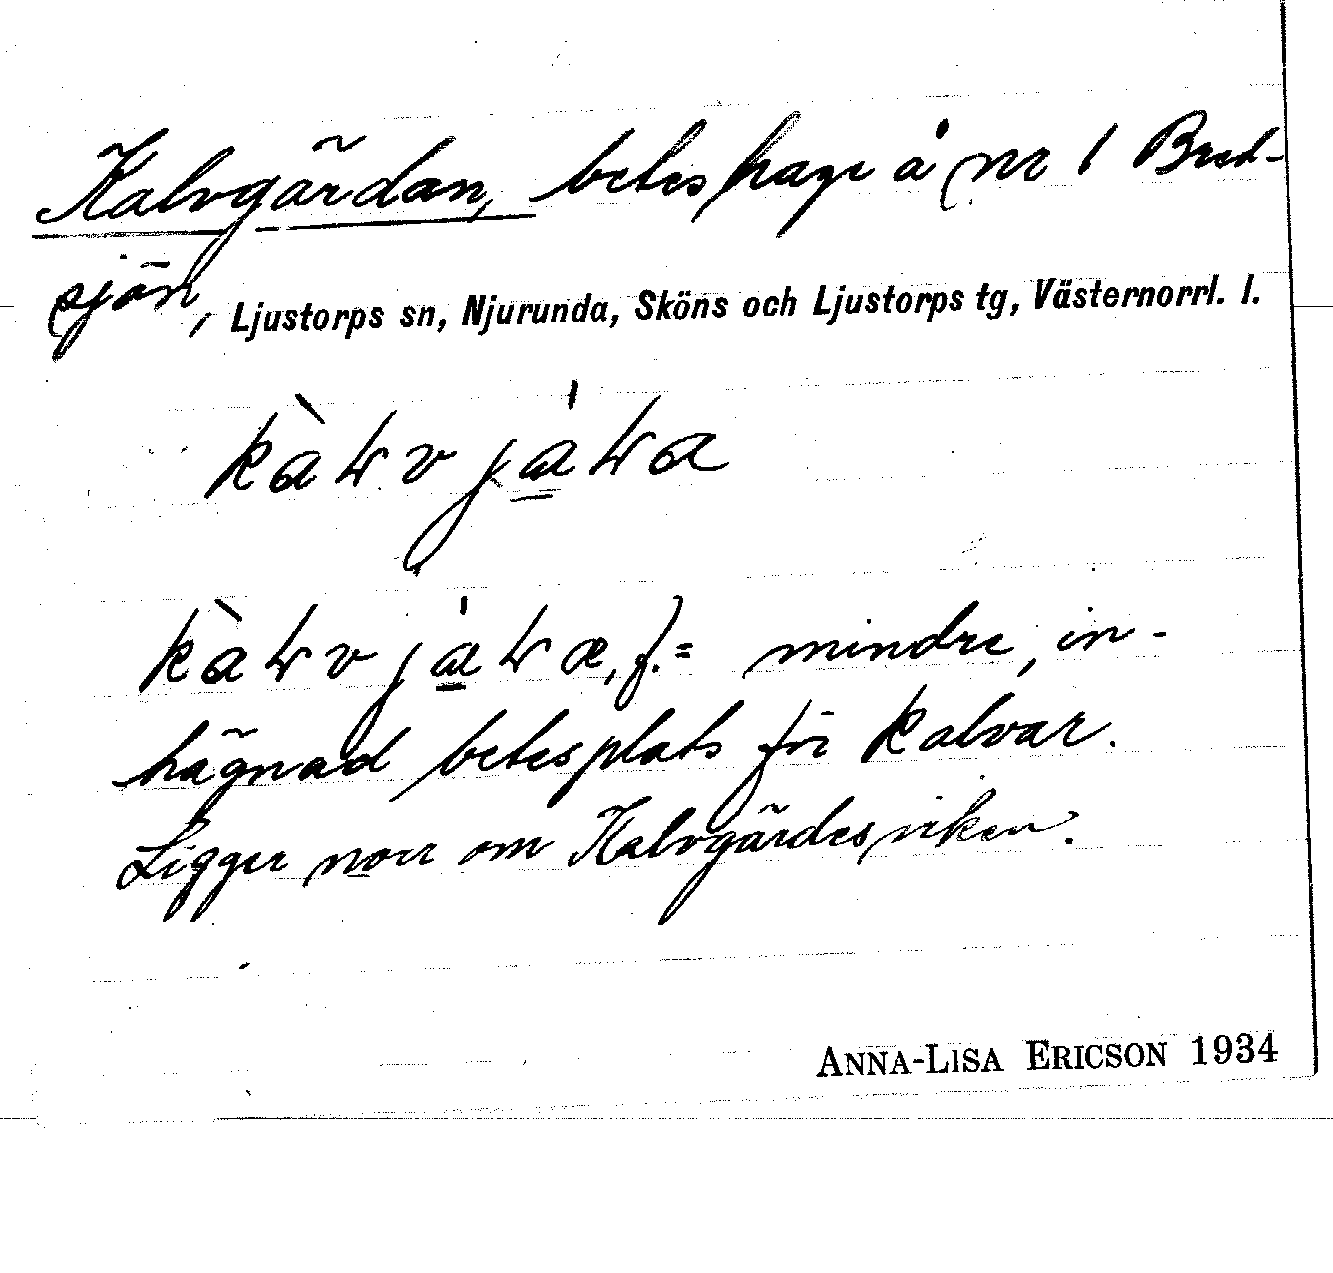 Kalvgärdan, beteshage å nr 1 Bred-
sjön, Ljustorps sn, Njurunda, Sköns och Ljustorps tg, Västernorrl. l.
f. = mindre, in-
hägnad betesplats för kalvar.
Ligger norr om Kalvgärdesviken.
ANNA-LISA ERICSON 1934